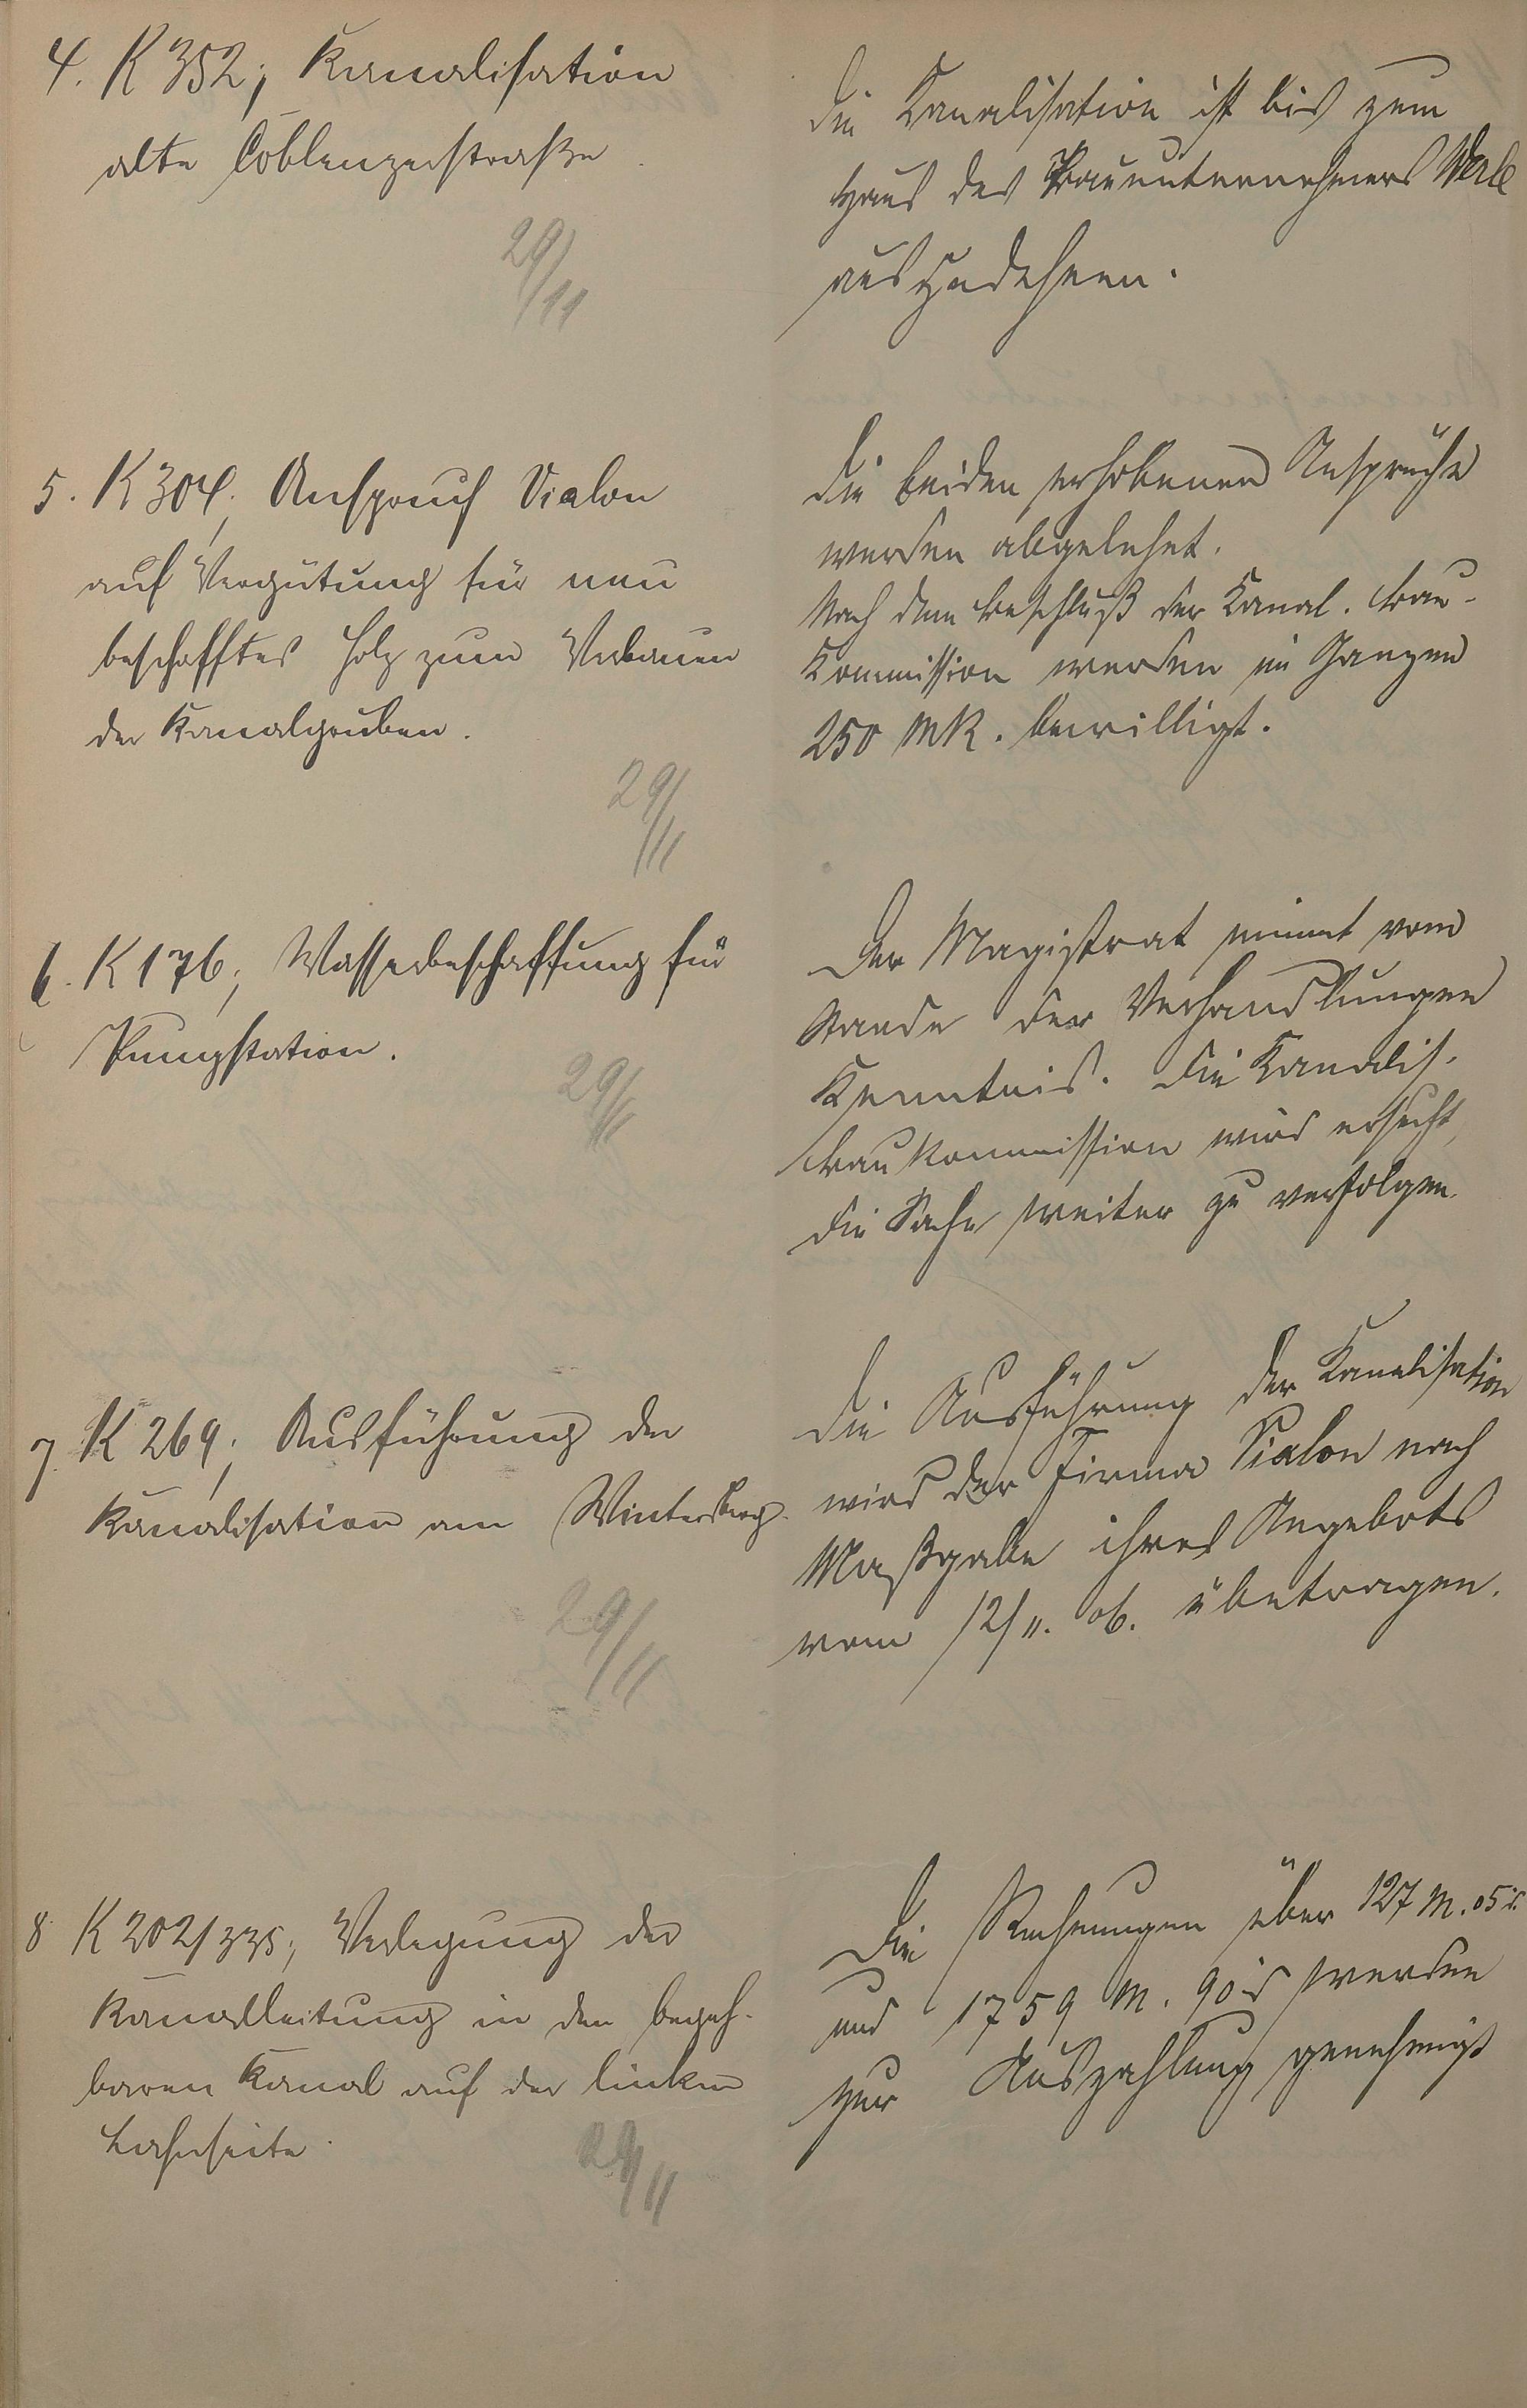 4. K 352; Kanalisation
alte Coblenzerstraße
29/11
Die Kanalisation ist bis zum
Haus des Bauunternehmers Werle
auszudehnen.
5. K 304; Anspruch Vialon
auf Vergütung für neu
beschafftes Holz zum Verbauen
der Kanalgruben.
29/11
Die beiden erhobenen Ansprüche
werden abgelehnt.
Nach dem Beschluß der Kanal. Bau-
Commission werden im Ganzen
250 Mk. bewilligt.
6. K 176; Wasserbeschaffung für
Pumpstation.
29/11
Der Magistrat nimmt vom
Stande der Verhandlungen
Kenntnis. Die Kanalis.
Baukommission wird ersucht,
die Sache weiter zu verfolgen.
7. K 269; Ausführung der
Kanalisation am Wintersberg.
29/11
Die Ausführung der Kanalisation
wird der Firma Vialon nach
Maßgabe ihres Angebots
vom 12/11. 06. übertragen.
8 K 202/335; Verlegung der
Kanalleitung in den begeh-
baren Kanal auf der linken
Lahnseite.
29/11
Die Rechnungen über 127 M. 05 ₰.
und 1759 M. 90 ₰ werden
zur Auszahlung genehmigt